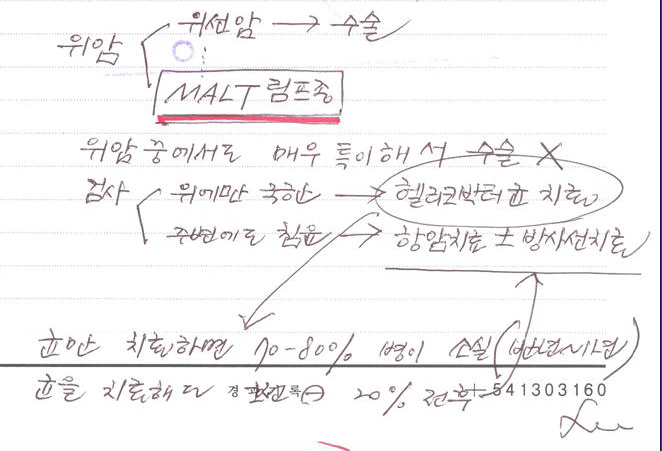 위암 위선암 → 수술
MALT 림프종
위암 중에서도 매우 특이해서 수술 X
검사 위에만 국한 → 헬리코박터균 치료
주변에도 침윤 → 항암치료 ± 방사선치료
균만 치료하면 70-80% 병이 소실 (반년~1년)
균을 치료해도 20% 전후 541303160